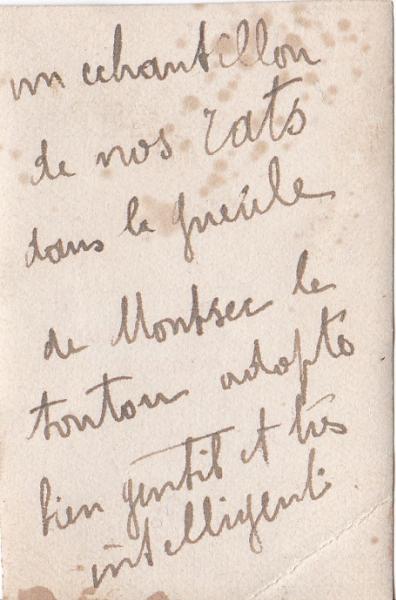 un echantillon
de nos rats
dans la gueule
de Montsec le
toutou adopté
bien gentil et très
intelligent